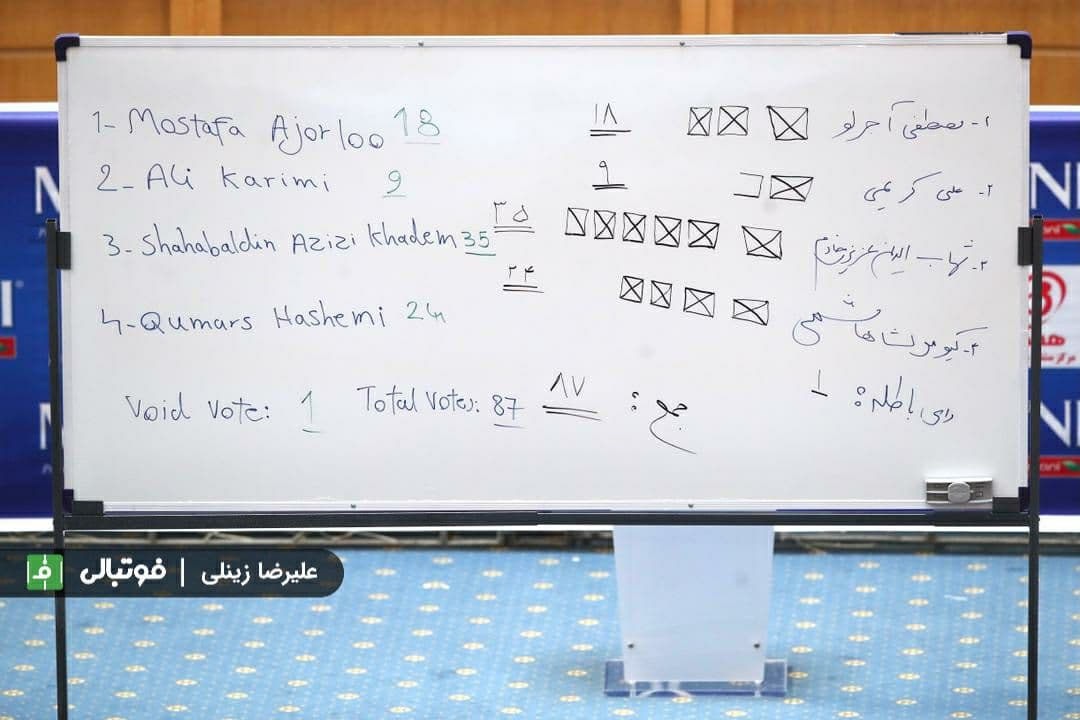 1- Mostafa Ajorloo 18
۱۸
۱- مصطفی آجرلو
2- Ali Karimi 9
۹
۲- علی کریمی
3- Shahabaldin Azizi Khadem 35
۳۵
۳- شهاب الدین عزیزی خادم
4- Qumars Hashemi 24
۲۴
۴- کیومرث هاشمی
Void Vote: 1
Total Votes: 87
۸۷
جمع :
رای باطله: ۱
فوتبالی | علیرضا زینلی